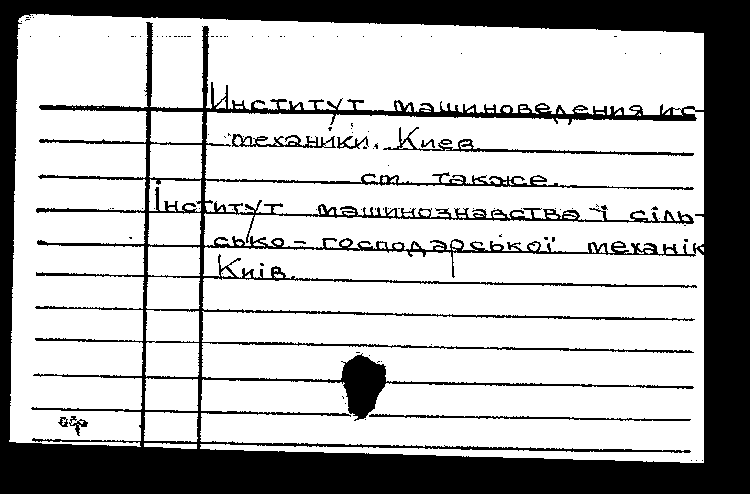 Институт машиноведения и с-
механики. Киев
см. также.
Інститут машинознавства і сіль-
сько-господарської механік
Київ.